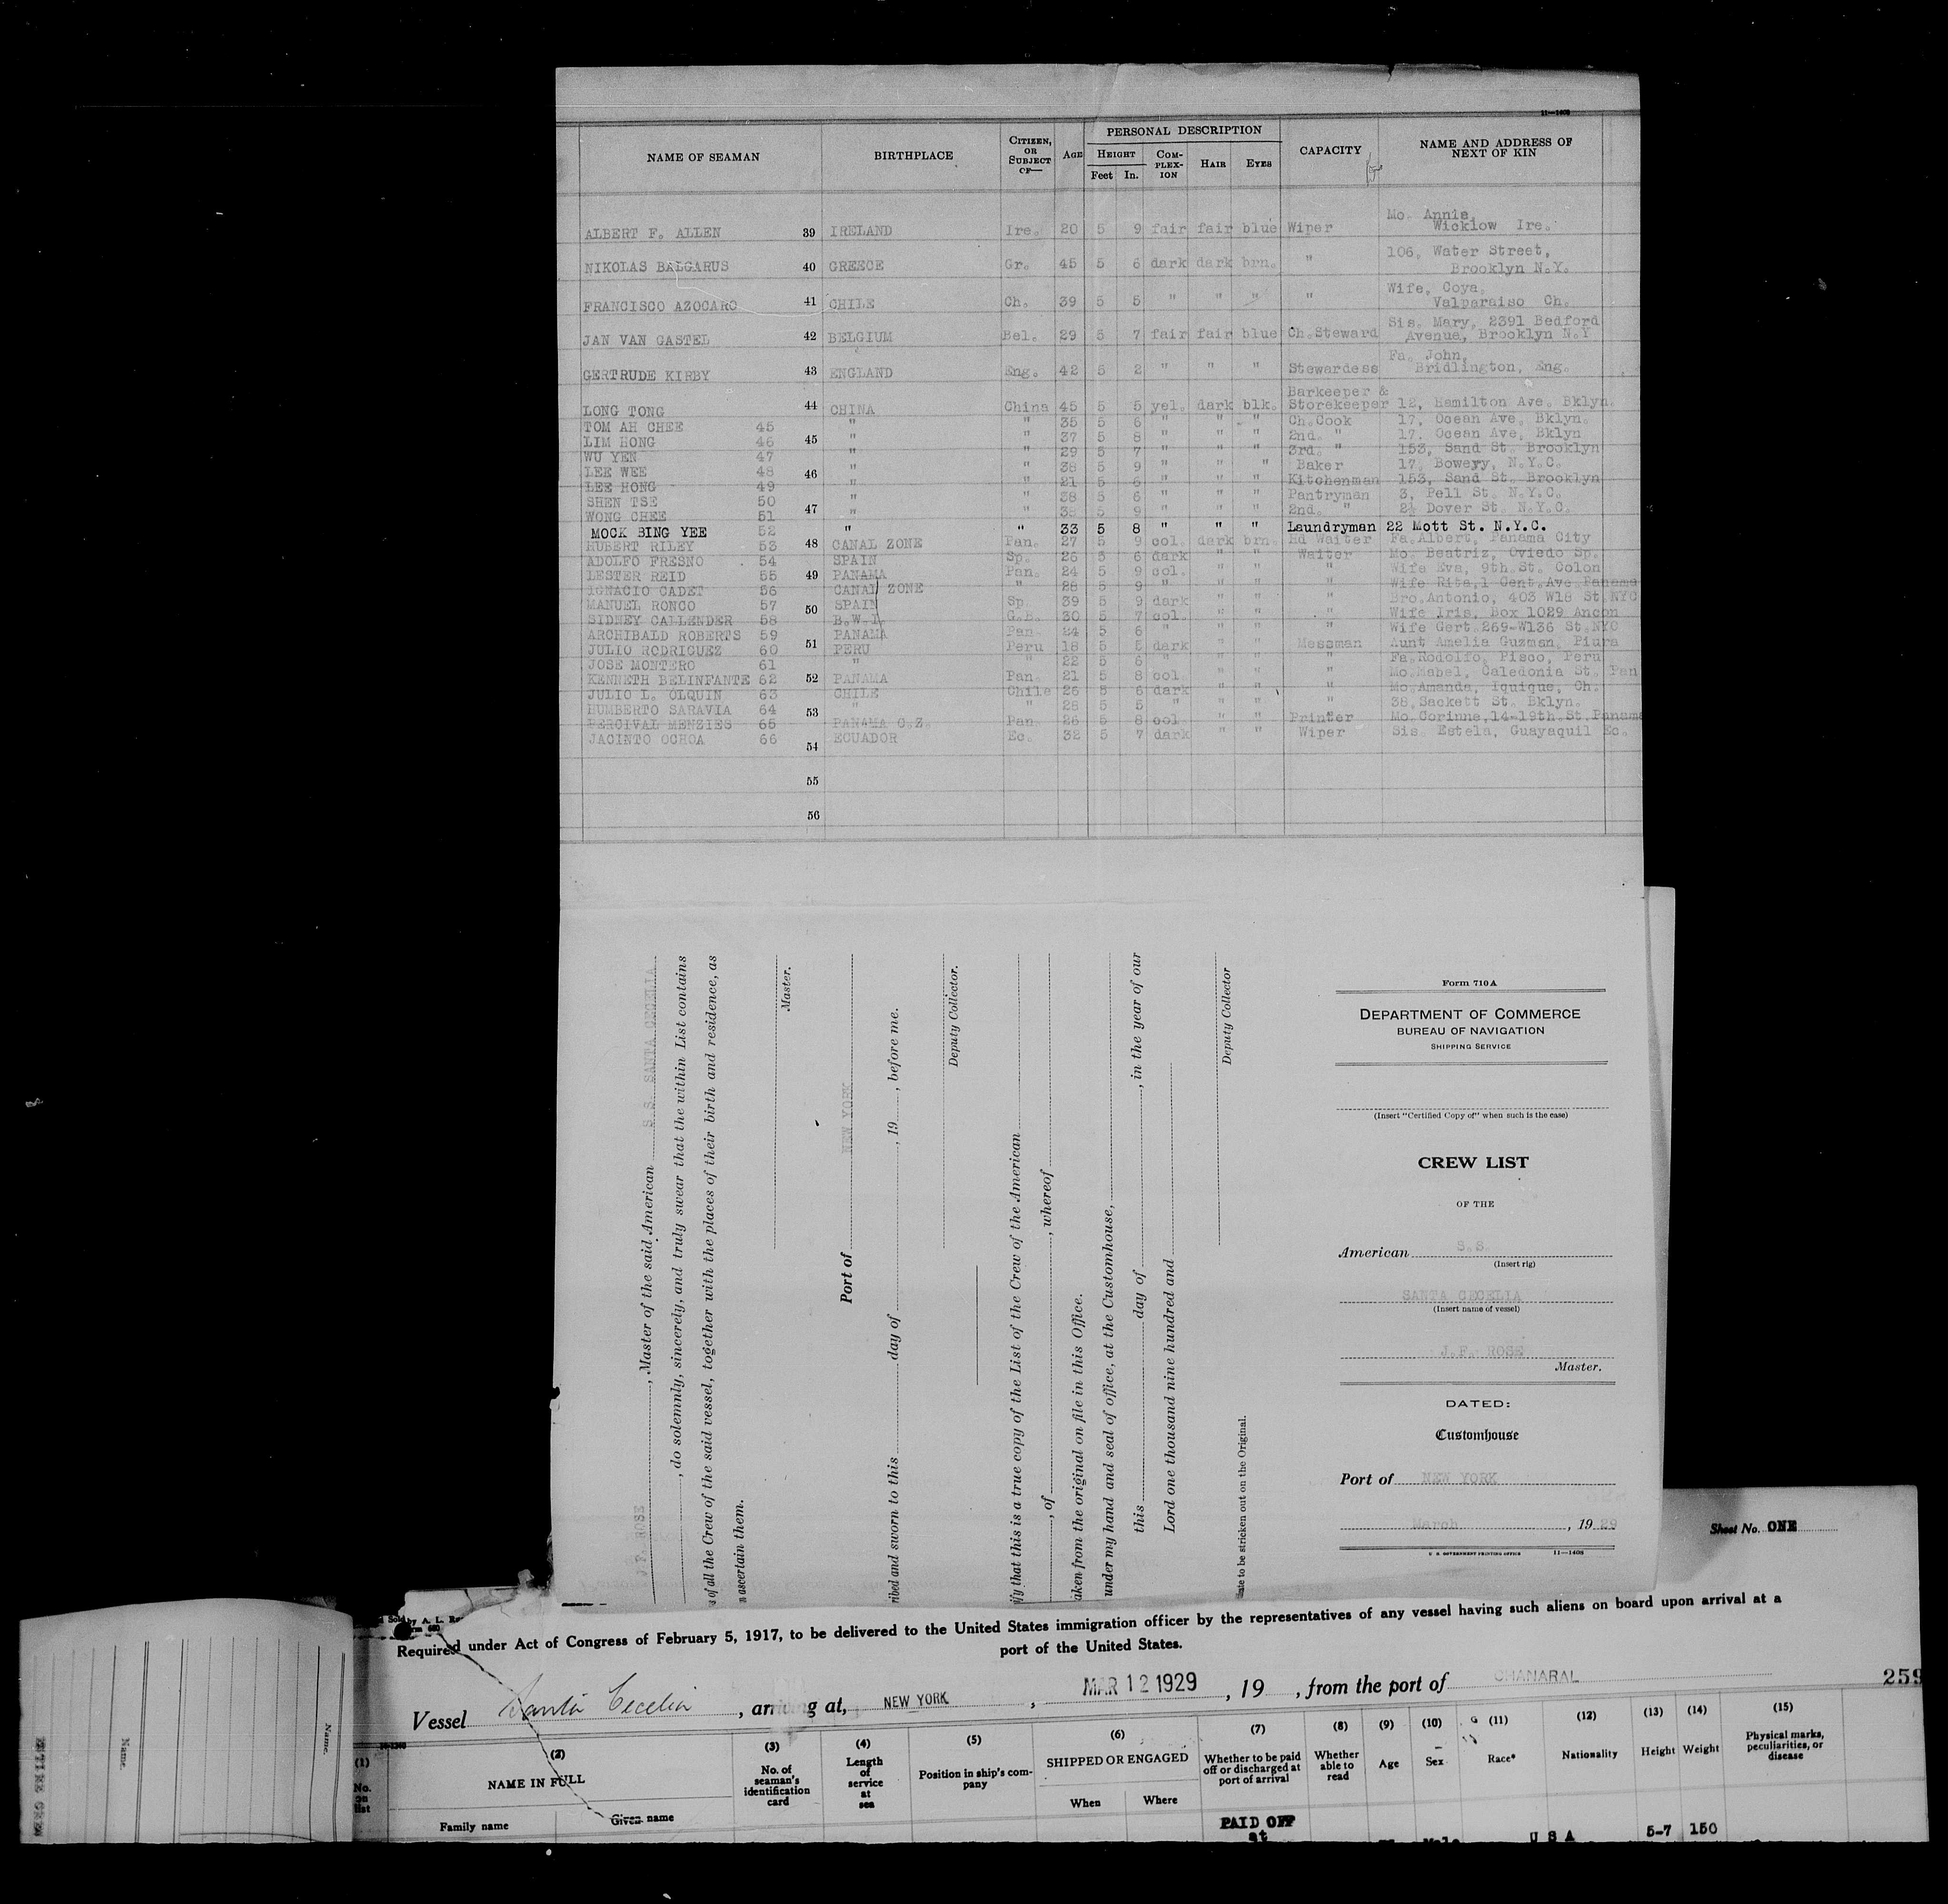 11—1408
NAME OF SEAMAN BIRTHPLACE CITIZEN, OR SUBJECT OF— AGE PERSONAL DESCRIPTION HEIGHT Feet In. COM-PLEX-ION HAIR EYES CAPACITY NAME AND ADDRESS OF NEXT OF KIN
ALBERT F. ALLEN 39 IRELAND Ire. 20 5 9 fair fair blue Wiper Mo. Annie, Wicklow Ire.
NIKOLAS BALGARUS 40 GREECE Gr. 45 5 6 dark dark brn. " 106. Water Street, Brooklyn N.Y.
FRANCISCO AZOCARO 41 CHILE Ch. 39 5 5 " " " " Wife, Coya, Valparaiso Ch.
JAN VAN GASTEL 42 BELGIUM Bel. 29 5 7 fair fair blue Ch.Steward Sis. Mary, 2391 Bedford Avenue, Brooklyn N.Y
GERTRUDE KIRBY 43 ENGLAND Eng. 42 5 2 " " " Stewardess Fa. John, Bridlington, Eng.
LONG TONG 44 CHINA China 45 5 5 yel. dark blk. Barkeeper & Storekeeper 12, Hamilton Ave. Bklyn.
TOM AH CHEE 45 " " 35 5 6 " " " Ch.Cook 17, Ocean Ave. Bklyn.
LIM HONG 46 45 " " 37 5 8 " " " 2nd. " 17. Ocean Ave, Bklyn
WU YEN 47 " " 29 5 7 " " " 3rd. " 153, Sand St. Brooklyn
LEE WEE 48 46 " " 38 5 9 " " " Baker 17, Bowery, N.Y.C.
LEE HONG 49 " " 21 5 6 " " " Kitchenman 153, Sand St. Brooklyn
SHEN TSE 50 47 " " 38 5 6 " " " Pantryman 3, Pell St. N.Y.C.
WONG CHEE 51 " " 38 5 9 " " " 2nd. " 2½ Dover St. N.Y.C.
MOCK BING YEE 52 " " 33 5 8 " " " Laundryman 22 Mott St. N.Y.C.
HUBERT RILEY 53 48 CANAL ZONE Pan. 27 5 9 col. dark brn. Hd Waiter Fa.Albert, Panama City
ADOLFO FRESNO 54 SPAIN Sp. 26 5 6 dark " " Waiter Mo. Beatriz, Oviedo Sp.
LESTER REID 55 49 PANAMA Pan. 24 5 9 col. " " " Wife Eva, 9th.St. Colon
IGNACIO CADET 56 CANAL ZONE " 28 5 9 " " " " Wife Rita,1 Cent.Ave Panama
MANUEL RONCO 57 50 SPAIN Sp 39 5 9 dark " " " Bro.Antonio, 403 W18 St.NYC
SIDNEY CALLENDER 58 B.W.I. G.B. 30 5 7 col. " " " Wife Iris, Box 1029 Ancon
ARCHIBALD ROBERTS 59 PANAMA Pan 24 5 6 " " " " Wife Gert.269-W136 St.NYC
JULIO RODRIGUEZ 60 51 PERU Peru 18 5 5 dark " " Messman Aunt Amelia Guzman, Piura
JOSE MONTERO 61 " " 22 5 6 " " " " Fa.Rodolfo, Pisco, Peru
KENNETH BELINFANTE 62 52 PANAMA Pan. 21 5 8 col. " " " Mo.Mabel, Caledonia St. Pan
JULIO L. OLQUIN 63 CHILE Chile 26 5 6 dark " " " Mo.Amanda, Iquique, Ch.
HUMBERTO SARAVIA 64 53 " " 28 5 5 " " " " 38, Sackett St. Bklyn.
PERCIVAL MENZIES 65 PANAMA C.Z. Pan. 26 5 8 col. " " Printer Mo.Corinne,14-19th.St.Panama
JACINTO OCHOA 66 54 ECUADOR Ec. 32 5 7 dark " " Wiper Sis. Estela, Guayaquil Ec.
55
56
J.F. ROSE, Master of the said American S.S. SANTA CECELIA
, do solemnly, sincerely, and truly swear that the within List contains
of all the Crew of the said vessel, together with the places of their birth and residence, as
ascertain them.
Master.
Port of NEW YORK
ribed and sworn to this day of , 19 , before me.
Deputy Collector.
ify that this is a true copy of the List of the Crew of the American
, of , whereof
aken from the original on file in this Office.
under my hand and seal of office, at the Customhouse,
this day of , in the year of our
Lord one thousand nine hundred and
Deputy Collector
ate to be stricken out on the Original.
Form 710A
DEPARTMENT OF COMMERCE
BUREAU OF NAVIGATION
SHIPPING SERVICE
(Insert "Certified Copy of" when such is the case)
CREW LIST
OF THE
American S.S.
(Insert rig)
SANTA CECELIA
(Insert name of vessel)
J.F. ROSE
Master.
DATED:
Customhouse
Port of NEW YORK
March , 1929
U. S. GOVERNMENT PRINTING OFFICE 11—1408
Sheet No. ONE
Required under Act of Congress of February 5, 1917, to be delivered to the United States immigration officer by the representatives of any vessel having such aliens on board upon arrival at a
port of the United States.
Vessel Santa Cecelia, arriving at, NEW YORK, MAR 12 1929, 19 , from the port of CHANARAL
259
(1) No. on list
(2) NAME IN FULL Family name Given name
(3) No. of seaman's identification card
(4) Length of service at sea
(5) Position in ship's company
(6) SHIPPED OR ENGAGED When Where
(7) Whether to be paid off or discharged at port of arrival
(8) Whether able to read
(9) Age
(10) Sex
(11) Race*
(12) Nationality
(13) Height
(14) Weight
(15) Physical marks, peculiarities, or disease
PAID OFF at Male U S A 5-7 150
Name.
Name.